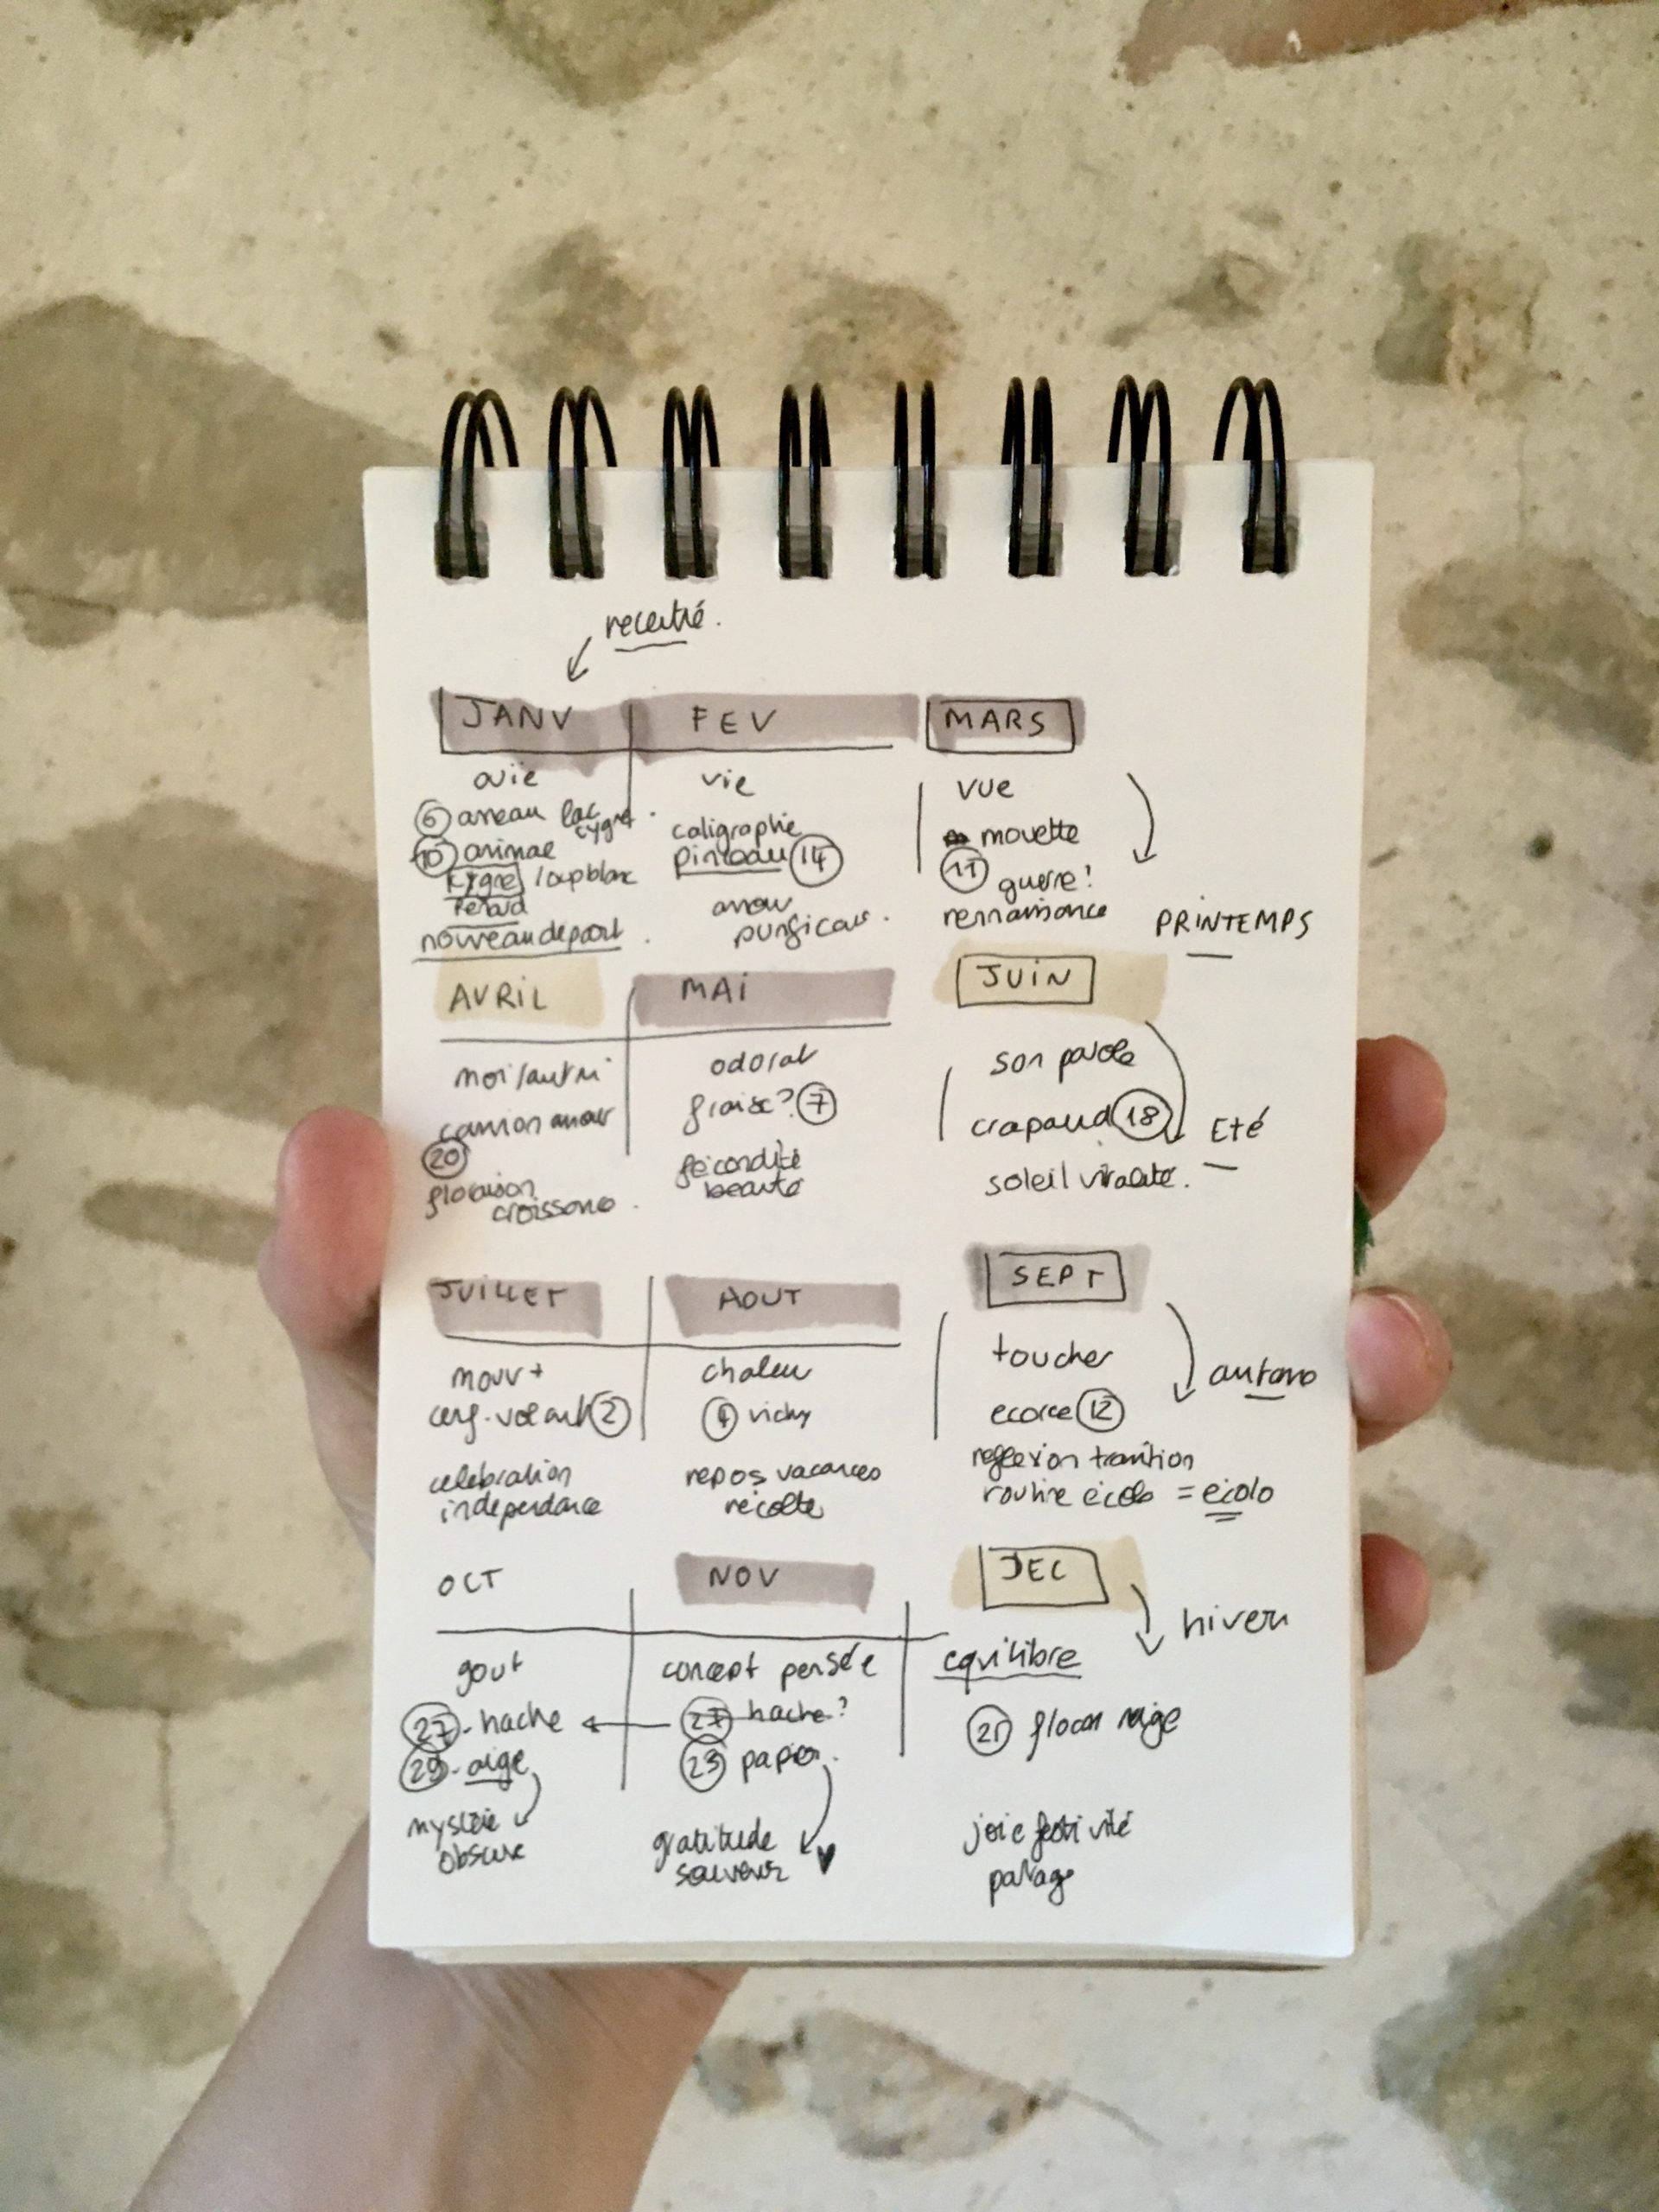 recentré.
JANV
FEV
MARS
ouie
⑥ anneau lac cygne.
⑩ animae
tygre loup blanc
renard
nouveau depart.
vie
caligraphie
pinceau ⑭
amour
purification.
vue
mouette
⑪ guerre!
rennaissance
PRINTEMPS
AVRIL
MAI
JUIN
moi/autrui
camion amour
⑳
floraison
croissance.
odorat
fraise? ⑦
fécondité
beauté
son parole
crapaud ⑱
soleil vitalité.
Eté
JUILLET
AOUT
SEPT
mouv+
cerf-volant ②
celebration
independance
chaleur
④ vichy
repos vacances
récolte
toucher
ecorce ⑫
reflexion transition
routine ecolo = ecolo
OCT
NOV
DEC
hiver
gout
㉗-hache
㉙-aige
mystère
obscur
concept pensée
㉗ hache?
papier.
gratitude
souvenir
equilibre
㉑ flocon neige
joie festivité
partage